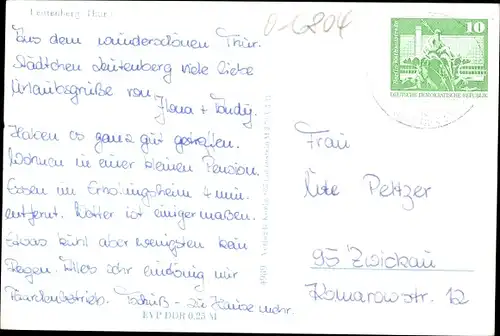 Leutenberg Thür.
o-6804
Aus dem wunderschönen Thür.
Städtchen Leutenberg viele liebe
Urlaubsgrüße von
Ilona +
Haben es ganz gut getroffen.
Wohnen in einer kleinen Pension.
Essen im Erholungsheim 4 min.
entfernt. Wetter ist einigermaßen.
Etwas kühl aber wenigsten kein
Regen. Alles sehr eintönig nur
Tschüß - zu Hause mehr.
EVP DDR 0.25 M
10
DEUTSCHE DEMOKRATISCHE REPUBLIK
Frau
Ute Peltzer
95 Zwickau
Komarowstr. 12